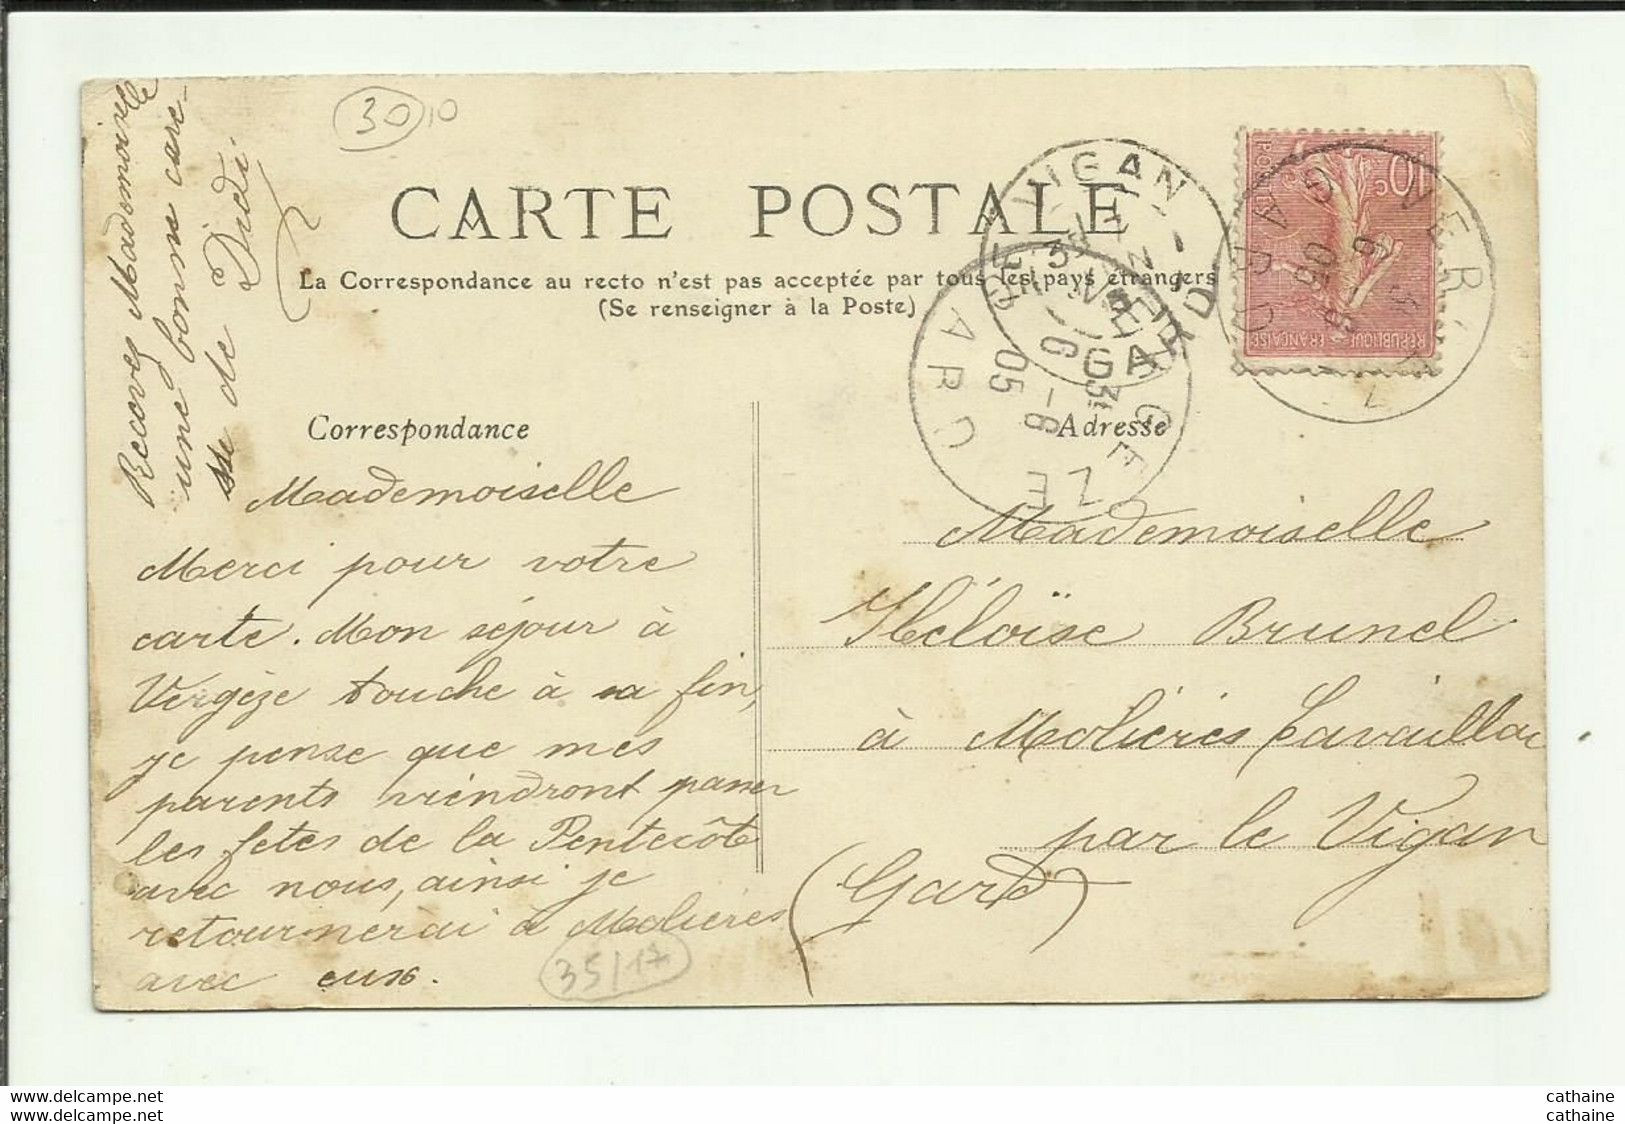 30 10
CARTE POSTALE
La Correspondance au recto n'est pas acceptée par tous les pays étrangers
(Se renseigner à la Poste)
Recevez Mademoiselle
une bonne care-
sse de
Didi.
Correspondance
Mademoiselle
Merci pour votre
carte. Mon séjour à
Vergèze touche à sa fin,
je pense que mes
parents viendront passer
les fêtes de la Pentecôte
avec nous, ainsi je
retournerai à Molières
avec eux.
35/17
Adresse
Mademoiselle
Héloïse Brunel
à Molières Cavaillac
par le Vigan
(Gard)
LE VIGAN
GARD
VERGEZE
GARD
6 -6
05
10c
POSTES
REPUBLIQUE FRANÇAISE
VER
GARD
cathaine
cathaine
www.delcampe.net
www.delcampe.net